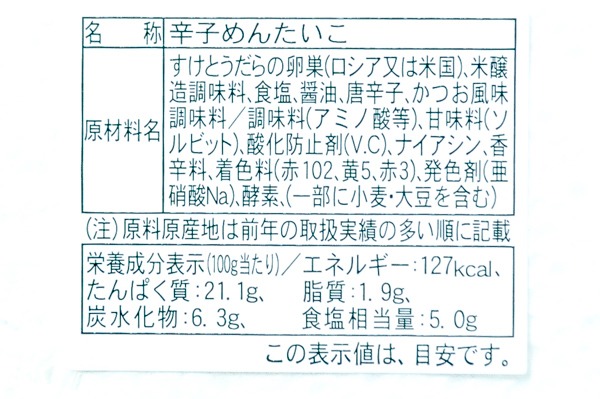 名称 辛子めんたいこ
原材料名
すけとうだらの卵巣(ロシア又は米国)、米醸
造調味料、食塩、醤油、唐辛子、かつお風味
調味料／調味料(アミノ酸等)、甘味料(ソ
ルビット)、酸化防止剤(V.C)、ナイアシン、香
辛料、着色料(赤102、黄5、赤3)、発色剤(亜
硝酸Na)、酵素、(一部に小麦・大豆を含む)
(注)原料原産地は前年の取扱実績の多い順に記載
栄養成分表示(100g当たり)／エネルギー:127kcal、
たんぱく質:21.1g、 脂質:1.9g、
炭水化物:6.3g、 食塩相当量:5.0g
この表示値は、目安です。